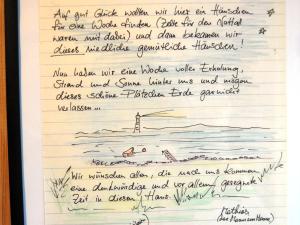 Auf gut Glück wollten wir hier ein Häuschen
für eine Woche finden (Zelte für den Notfall
waren mit dabei) und dann bekamen wir
dieses niedliche gemütliche Häuschen!
Nun haben wir eine Woche voller Erholung,
Strand und Sonne hinter uns und mögen
dieses schöne Plätzchen Erde gar nicht
verlassen...
Wir wünschen allen, die nach uns kommen
eine denkwürdige und vor allem gesegnete
Zeit in diesem Haus.
Mathias